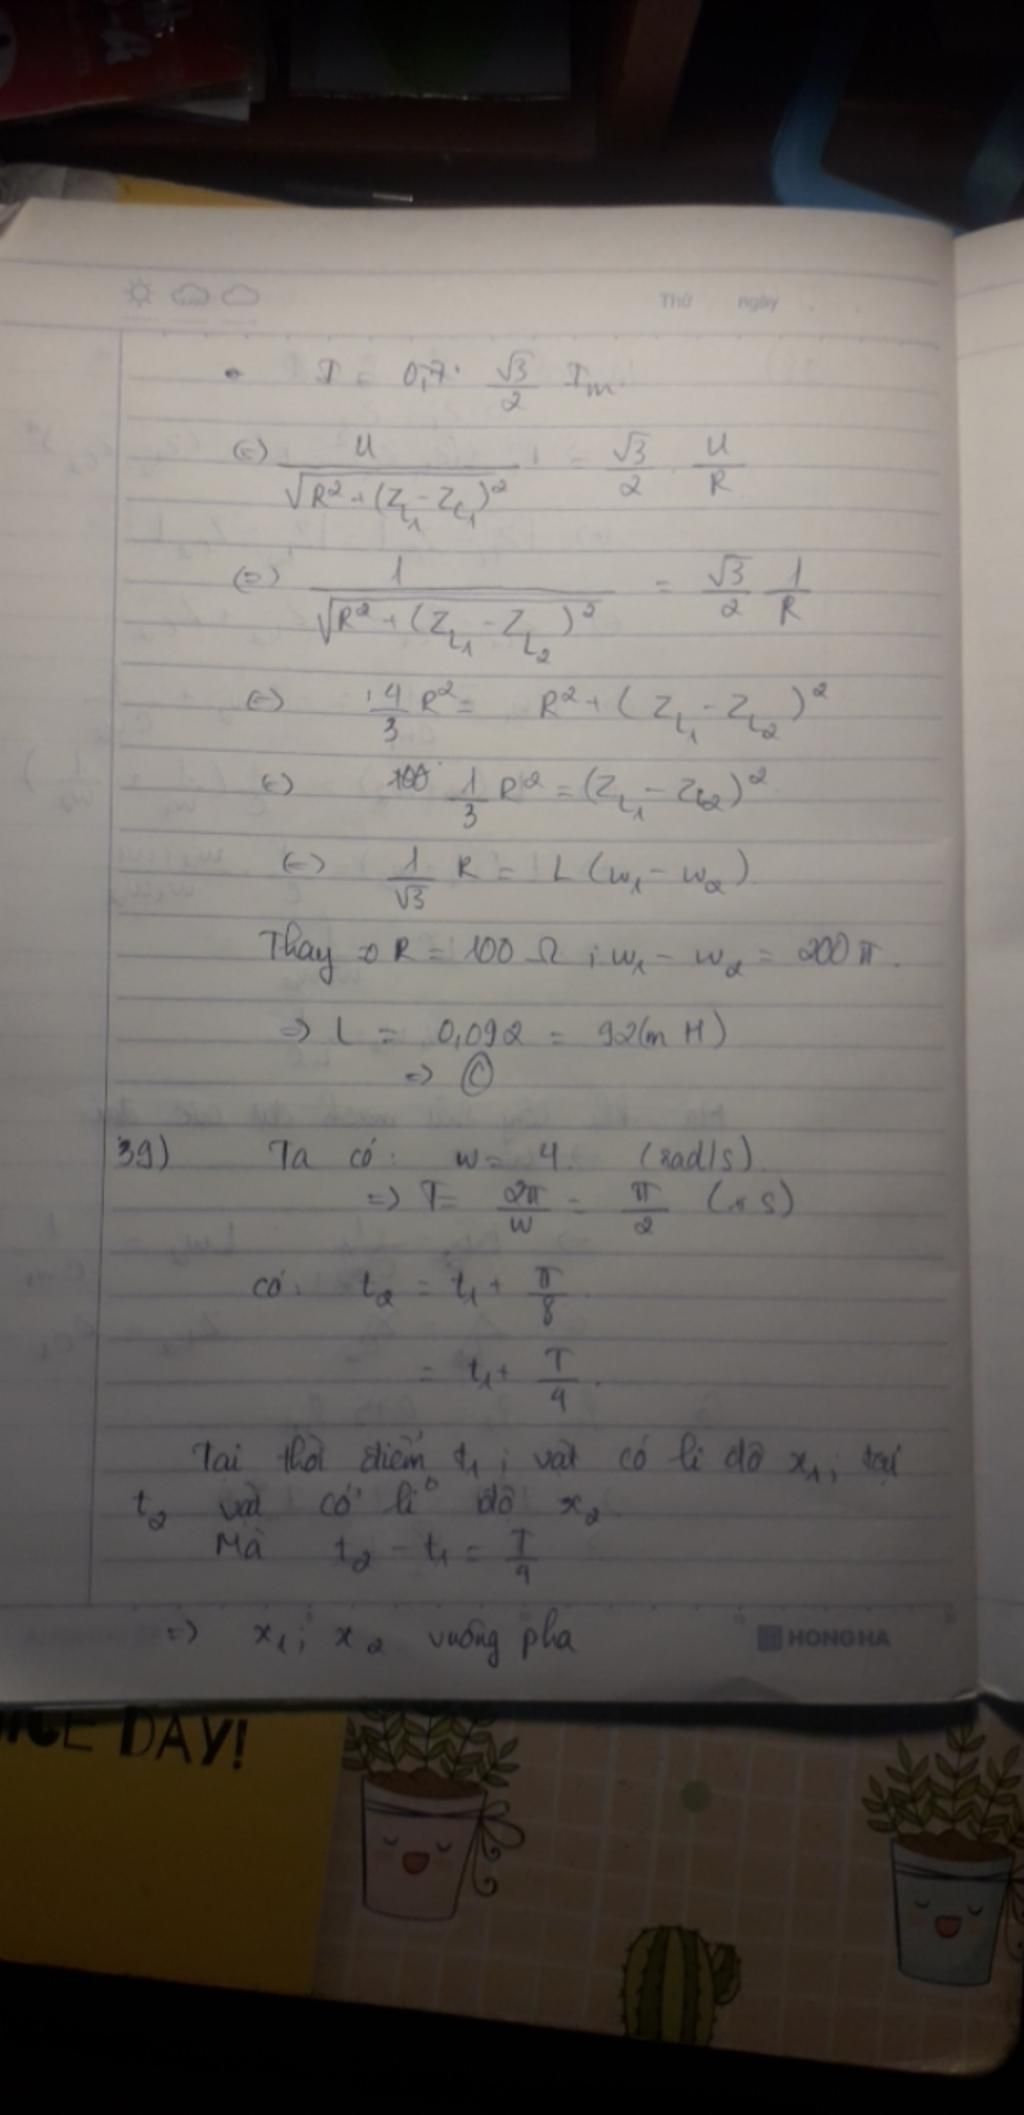 Thứ ngày
• I = 0,7. √3/2 Im.
(=) U/√(R² + (Z_L1 - Z_C1)²) = √3/2 . U/R
(=) 1/√(R² + (Z_L1 - Z_L2)²) = √3/2 1/R
(=) 4/3 R² = R² + (Z_L1 - Z_L2)²
(=) 1/3 R² = (Z_L1 - Z_L2)²
(=) 1/√3 R = L(w1 - w2)
Thay R = 100 Ω ; w1 - w2 = 200π.
=> L = 0,092 = 92(mH)
=> C
39) Ta có: w = 4 (rad/s).
=> T = 2π/w = π/2 (s)
có: t2 = t1 + π/8
= t1 + T/4.
Tại thời điểm t1 ; vật có li độ x1 ; tại
t2 vật có li độ x2
Mà t2 - t1 = T/4
=> x1 ; x2 vuông pha
HONG HA
DAY!